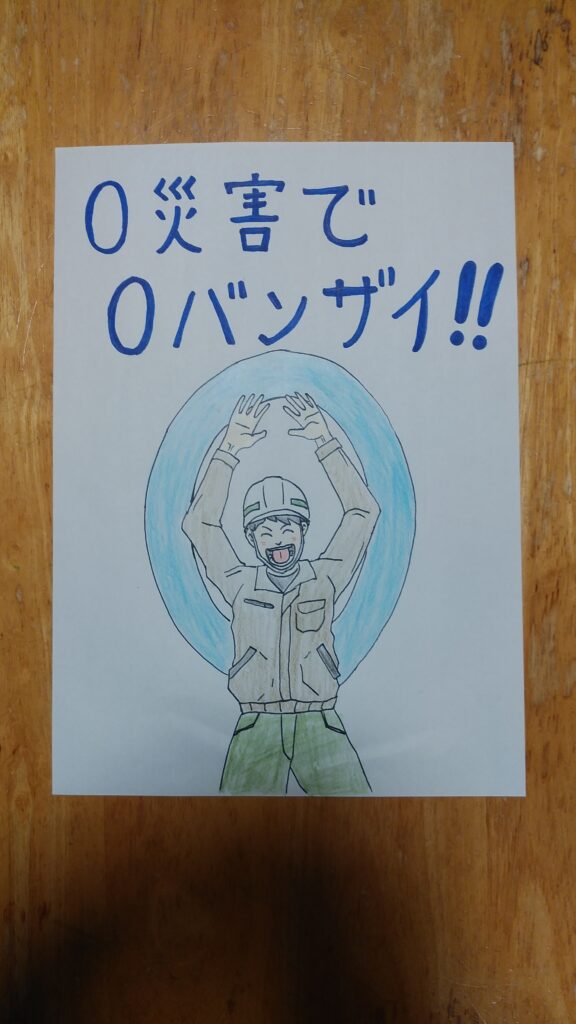 0災害で
0バンザイ!!